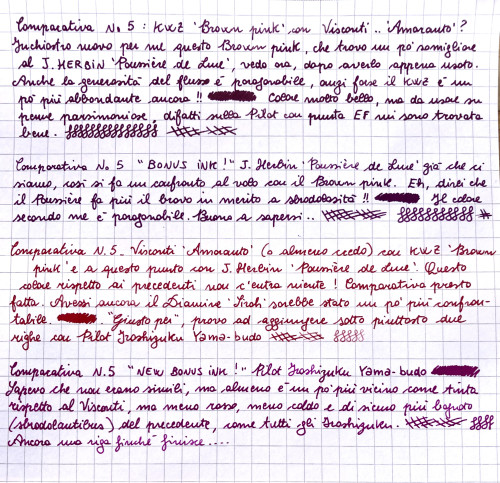 Comparativa No 5 : KWZ 'Brown pink' con Visconti .. 'Amaranto' ?
Inchiostro nuovo per me questo Brown pink, che trovo un po' somigliare
al J. HERBIN 'Poussière de Lune', vedo ora, dopo averlo appena usato.
Anche la generosità del flusso è paragonabile, anzi forse il KWZ è un
po' più abbondante ancora !! Colore molto bello, ma da usare su
penne parsimoniose, difatti sulla Pilot con punta EF mi sono trovata
bene.
Comparativa No 5 "BONUS INK !" J. Herbin 'Poussière de Lune' già che ci
siamo, così si fa un confronto al volo con il Brown pink. Eh, direi che
il Poussière fa più il bravo in merito a sbrodolosità !! Il colore
secondo me è paragonabile. Buono a sapersi ..
Comparativa N. 5 - Visconti 'Amaranto' (o almeno credo) con KWZ 'Brown
pink' e a questo punto con J. Herbin 'Poussière de Lune'. Questo
colore rispetto ai precedenti non c'entra niente ! Comparativa presto
fatta. Avessi ancora il Diamine 'Syrah' sarebbe stato un po' più confron-
tabile. "Giusto per", provo ad aggiungere sotto piuttosto due
righe con Pilot Iroshizuku Yama-budo
Comparativa N. 5 "NEW BONUS INK !" Pilot Iroshizuku Yama-budo
Sapevo che non erano simili, ma almeno è un po' più vicino come tinta
rispetto al Visconti, ma meno rosso, meno caldo e di sicuro più bagnato
(sbrodolantibus) del precedente, come tutti gli Iroshizuku.
Ancora una riga finché finisce ....